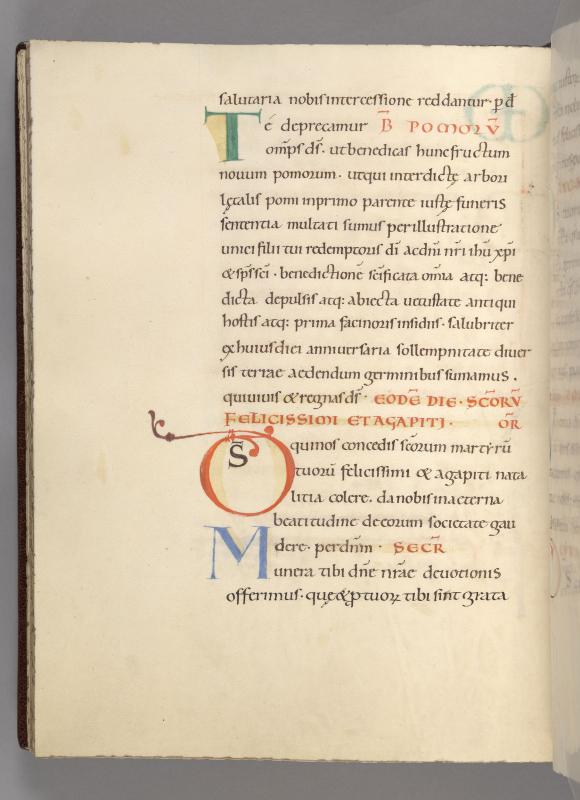 salutaria nobis intercessione reddantur· p̄ d̄
Te deprecamur B̄ POMORŪ
omp̄s d̄s· ut benedicas hunc fructum
nouum pomorum· ut qui interdictę arbori
lętalis pomi in primo parente iustę funeris
sententia multati sumus per illustratione
unici filii tui redemptoris d̄i ac dn̄i nr̄i ihū xp̄i
& sp̄s sc̄i· benedictionē sc̄ificata om̄ia atq: bene
dicta depulsis atq: abiecta uetustate antiqui
hostis atq: prima facinoris insidiis· salubriter
ex huius diei anniuersaria sollempnitate diuer
sis terrae aedendum germinibus sumamus.
qui uiuis & regnas d̄s· EODĒ DIE· SC̄ORŪ
FELICISSIMI ET AGAPITI· OR̄
D̄S qui nos concedis sc̄orum martyrū
tuorū felicissimi & agapiti nata
litia colere· da nobis in aeterna
beatitudine de eorum societate gau
dere· per dn̄m· SECR̄
Munera tibi dn̄e nr̄ae deuotionis
offerimus· quę & p̱ tuoꝝ tibi sint grata